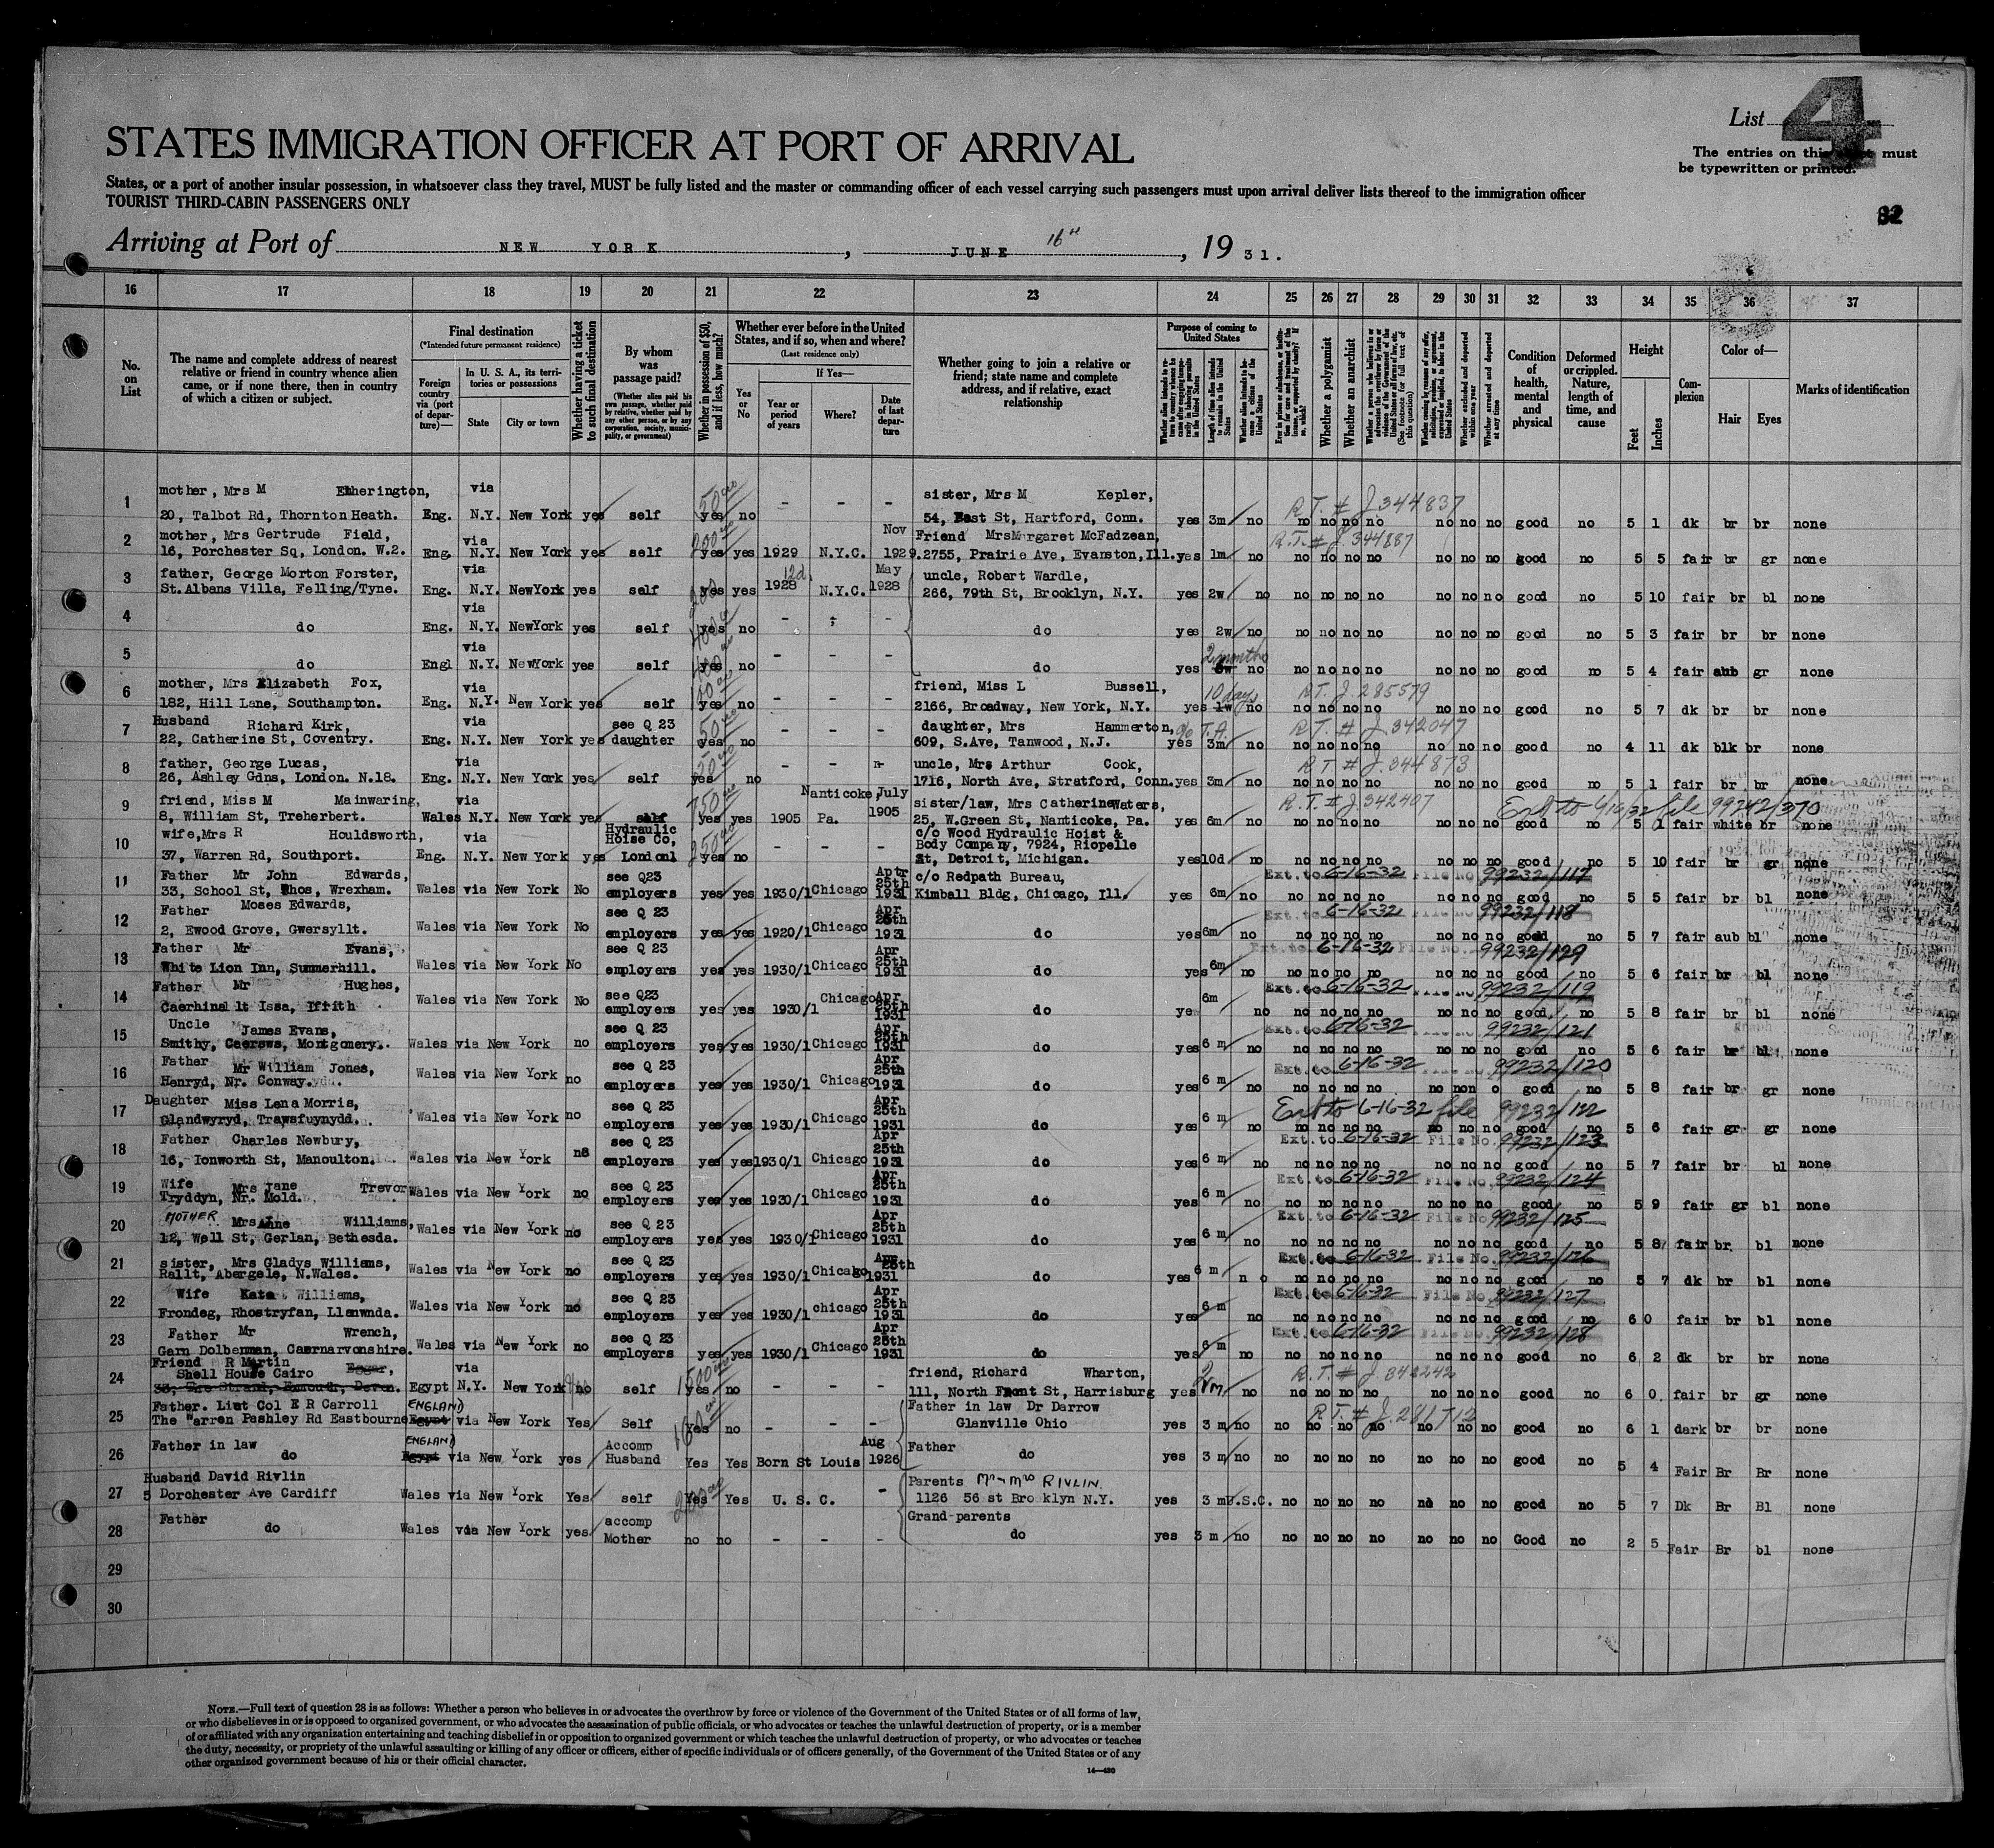 List 4
STATES IMMIGRATION OFFICER AT PORT OF ARRIVAL
The entries on this must
be typewritten or printed.
States, or a port of another insular possession, in whatsoever class they travel, MUST be fully listed and the master or commanding officer of each vessel carrying such passengers must upon arrival deliver lists thereof to the immigration officer
TOURIST THIRD-CABIN PASSENGERS ONLY
32
Arriving at Port of NEW YORK, JUNE 16th, 1931.
16 17 18 19 20 21 22 23 24 25 26 27 28 29 30 31 32 33 34 35 36 37
No. on List
The name and complete address of nearest relative or friend in country whence alien came, or if none there, then in country of which a citizen or subject.
Final destination
(*Intended future permanent residence)
Foreign country via (port of departure)—
In U. S. A., its territories or possessions
State
City or town
Whether having a ticket to such final destination
By whom was passage paid?
(Whether alien paid his own passage, whether paid by relative, whether paid by any other person, or by any corporation, society, municipality, or government)
Whether in possession of $50, and if less, how much?
Whether ever before in the United States, and if so, when and where?
(Last residence only)
Yes or No
If Yes—
Year or period of years
Where?
Date of last departure
Whether going to join a relative or friend; state name and complete address, and if relative, exact relationship
Purpose of coming to United States
Length of time alien intends to remain in the United States
Whether alien intends to become a citizen of the United States
Whether a polygamist
Whether an anarchist
Whether excluded and deported within one year
Whether arrested and deported at any time
Condition of health, mental and physical
Deformed or crippled. Nature, length of time, and cause
Height
Feet
Inches
Complexion
Color of—
Hair
Eyes
Marks of identification
1 mother, Mrs M Etherington, via - - - sister, Mrs M Kepler, R.T. # J.344837
20, Talbot Rd, Thornton Heath. Eng. N.Y. New York yes self yes no 54, East St, Hartford, Conn. yes 3m no no no no no no no no good no 5 1 dk br br none
2 mother, Mrs Gertrude Field, via Nov Friend Mrs Margaret McFadzean, R.T. # J 344887
16, Porchester Sq, London. W.2. Eng. N.Y. New York yes self yes yes 1929 N.Y.C. 1929. 2755, Prairie Ave, Evanston, Ill. yes 1m no no no no no no no no good no 5 5 fair br gr none
3 father, George Morton Forster, via 12d. May uncle, Robert Wardle,
St. Albans Villa, Felling/Tyne. Eng. N.Y. NewYork yes self yes yes 1928 N.Y.C. 1928 266, 79th St, Brooklyn, N.Y. yes 2w no no no no no no no no good no 5 10 fair br bl none
4 via
do Eng. N.Y. NewYork yes self yes no - - - do yes 2w no no no no no no no no good no 5 3 fair br br none
5 via 2 months
do Engl N.Y. NewYork yes self yes no - - - do yes no no no no no no no no good no 5 4 fair aub gr none
6 mother, Mrs Elizabeth Fox, via - - - friend, Miss L Bussell, 10 days R.T. J. 285579
182, Hill Lane, Southampton. Eng. N.Y. New York yes self yes no 2166, Broadway, New York, N.Y. yes 1w no no no no no no no no good no 5 7 dk br br none
7 Husband Richard Kirk, via see Q 23 - - - daughter, Mrs Hammerton, T.A. R.T. # J. 342047
22, Catherine St, Coventry. Eng. N.Y. New York yes daughter yes no 609, S.Ave, Tanwood, N.J. yes 3m no no no no no no no no good no 4 11 dk blk br none
8 father, George Lucas, via - - uncle, Mrs Arthur Cook, R T # J.344873
26, Ashley Gdns, London. N.18. Eng. N.Y. New York yes self yes no 1716, North Ave, Stratford, Conn. yes 3m no no no no no no no no good no 5 1 fair br br none
9 friend, Miss M Mainwaring, via Nanticoke July sister/law, Mrs Catherine Waters, R.T. # J 342407 Ext to 6/16/32 file 99242/370
8, William St, Treherbert. Wales N.Y. New York yes self yes yes 1905 Pa. 1905 25, W.Green St, Nanticoke, Pa. yes 6m no no no no no no no no good no 5 1 fair white br none
10 wife, Mrs R Houldsworth, via Hydraulic Hoise Co, - - - c/o Wood Hydraulic Hoist & Body Company, 7924, Riopelle
37, Warren Rd, Southport. Eng. N.Y. New York yes Londonl yes no St, Detroit, Michigan. yes 10d no no no no no no no no good no 5 10 fair br gr none
11 Father Mr John Edwards, see Q23 Apr 25th c/o Redpath Bureau, Ext. to 6-16-32 File No. 99232/117
33, School St, Rhos, Wrexham. Wales via New York No employers yes yes 1930/1 Chicago 1931 Kimball Bldg, Chicago, Ill. yes 6m no no no no no no no no good no 5 5 fair br bl none
12 Father Moses Edwards, see Q 23 Apr 25th Ext. to 6-16-32 99232/118
2, Ewood Grove, Gwersyllt. Wales via New York No employers yes yes 1920/1 Chicago 1931 do yes 6m no no no no no no no no good no 5 7 fair aub bl none
13 Father Mr Evans, see Q 23 Apr 25th Ext. to 6-16-32 File No. 99232/129
White Lion Inn, Summerhill. Wales via New York No employers yes yes 1930/1 Chicago 1931 do yes 6m no no no no no no no no good no 5 6 fair br bl none
14 Father Mr Hughes, see Q23 Apr 25th Ext. to 6-16-32 File No 99232/119
Issa, Wales via New York No employers yes yes 1930/1 Chicago 1931 do ye 6m no no no no no no no no good no 5 8 fair br bl none
15 Uncle James Evans, see Q 23 Apr 25th Ext. to 6-16-32 99232/121
Smithy, Caersws, Montgomery. Wales via New York no employers yes yes 1930/1 Chicago 1931 do yes 6 m no no no no no no no no good no 5 6 fair br bl none
16 Father Mr William Jones, see Q 23 Apr 25th Ext. to 6-16-32 99232/120
Henryd, Nr. Conway. Wales via New York no employers yes yes 1930/1 Chicago 1931 do yes 6 m no no no no no no non o good no 5 8 fair br gr none
17 Daughter Miss Lena Morris, see Q 23 Apr 25th Ext to 6-16-32 file 99232/122
Glandwyryd, Trawsfuynydd. Wales via New York no employers yes yes 1930/1 Chicago 1931 do yes 6 m no no no no no no no no good no 5 6 fair gr gr none
18 Father Charles Newbury, see Q 23 Apr 25th Ext. to 6-16-32 File No. 99232/123
16, Ionworth St, Manoulton. Wales via New York employers yes yes 1930/1 Chicago 1931 do yes 6 m no no no no no no no no good no 5 7 fair br bl none
19 Wife Mrs Jane Trevor see Q 23 Apr 25th Ext. to 6-16-32 File No. 99232/124
Tryddyn, Nr. Mold. Wales via New York no employers yes yes 1930/1 Chicago 1931 do yes 6 m no no no no no no no no good no 5 9 fair gr bl none
20 MOTHER Mrs Anne Williams, see Q 23 Apr 25th Ext. to 6-16-32 File No 99232/125
12, Well St, Gerlan, Bethesda. Wales via New York no employers yes yes 1930/1 Chicago 1931 do yes 6 m no no no no no no no no good no 5 8 fair br. bl none
21 sister, Mrs Gladys Williams, see Q 23 Apr 25th Ext. to 6-16-32 File No. 99232/126
Rallt, Abergele, N.Wales. Wales via New York no employers yes yes 1930/1 Chicago 1931 do yes 6 m n o no no no no no no no good no 5 7 dk br bl none
22 Wife Kate Williams, see Q 23 Apr 25th Ext. to 6-16-32 File No. 99232/127
Frondeg, Rhostryfan, Llanwnda. Wales via New York no employers yes yes 1930/1 chicago 1931 do yes 6 m no no no no no no no no good no 6 0 fair br bl none
23 Father Mr Wrench, see Q 23 Apr 25th Ext. to 6-16-32 File No. 99232/128
Garn Dolbenman, Caernarvonshire. Wales via New York no employers yes yes 1930/1 Chicago 1931 do yes 6 m no no no no no no no no good no 6 2 dk br br none
24 Friend R Martin Shell House Cairo Egger, via 1500 - - - friend, Richard Wharton, R.T. # J. 342242
33, The Strand, Exmouth, Devon. Egypt N.Y. New York no self yes no 111, North Front St, Harrisburg yes no no no no no no no no good no 6 0 fair br gr none
25 Father. Liut Col E R Carroll ENGLAND Father in law Dr Darrow R T. # J. 281712
The Warren Pashley Rd Eastbourne Egypt via New York Yes Self Yes no - - - Glanville Ohio yes 3 m no no no no no no no no good no 6 1 dark br br none
26 Father in law ENGLAND Accomp Aug Father
do Egypt via New York yes Husband Yes Yes Born St Louis 1926 do yes 3 m no no no no no no no no good no 5 4 Fair Br Br none
27 Husband David Rivlin Parents Mr & Mrs RIVLIN
5 Dorchester Ave Cardiff Wales via New York Yes self Yes Yes U. S. C. - 1126 56 st Brooklyn N.Y. yes 3 m U.S.C. no no no no no no no good no 5 7 Dk Br Bl none
28 Father accomp Grand-parents
do Wales via New York yes Mother no no - - - do yes 3 m no no no no no no no no Good no 2 5 Fair Br bl none
29
30
NOTE.—Full text of question 28 is as follows: Whether a person who believes in or advocates the overthrow by force or violence of the Government of the United States or of all forms of law,
or who disbelieves in or is opposed to organized government, or who advocates the assassination of public officials, or who advocates or teaches the unlawful destruction of property, or is a member
of or affiliated with any organization entertaining and teaching disbelief in or opposition to organized government or which teaches the unlawful destruction of property, or who advocates or teaches
the duty, necessity, or propriety of the unlawful assaulting or killing of any officer or officers, either of specific individuals or of officers generally, of the Government of the United States or of any
other organized government because of his or their official character.
14—430